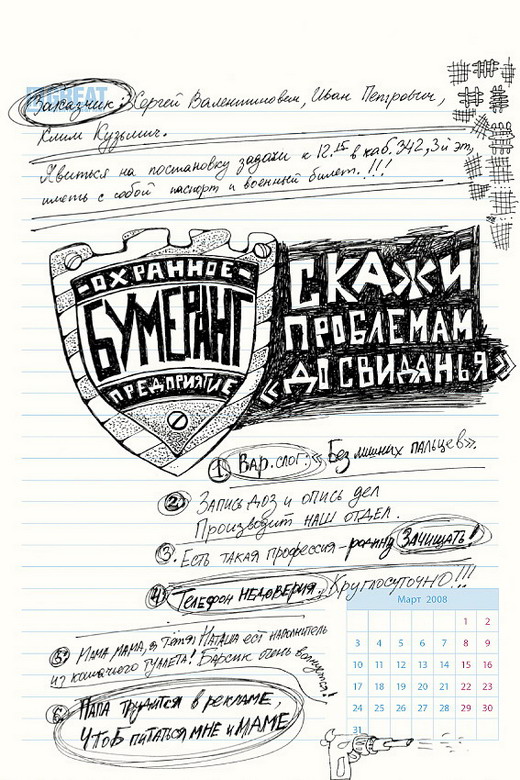 GREAT
Заказчик: Сергей Валентинович, Иван Петрович,
Клим Кузьмич.
Явиться на постановку задачи к 12.15 в каб. 342, 3й эт,
иметь с собой паспорт и военный билет.!!!
-ОХРАННОЕ-
БУМЕРАНГ
ПРЕДПРИЯТИЕ
СКАЖИ
ПРОБЛЕМАМ
«ДО СВИДАНЬЯ»
1. Вар. слог: «Без лишних пальцев».
2. Запись доз и опись дел
Производит наш отдел.
3. Есть такая профессия - родину Зачищать!
4. Телефон недоверия. Круглосуточно!!!
5. Мама мама, а тётя Наташа ест наполнитель
из кошачьего туалета! Барсик очень волнуется!
6. Папа трудится в рекламе,
чтоб питаться мне и маме
Март 2008
1 2
3 4 5 6 7 8 9
10 11 12 13 14 15 16
17 18 19 20 21 22 23
24 25 26 27 28 29 30
31